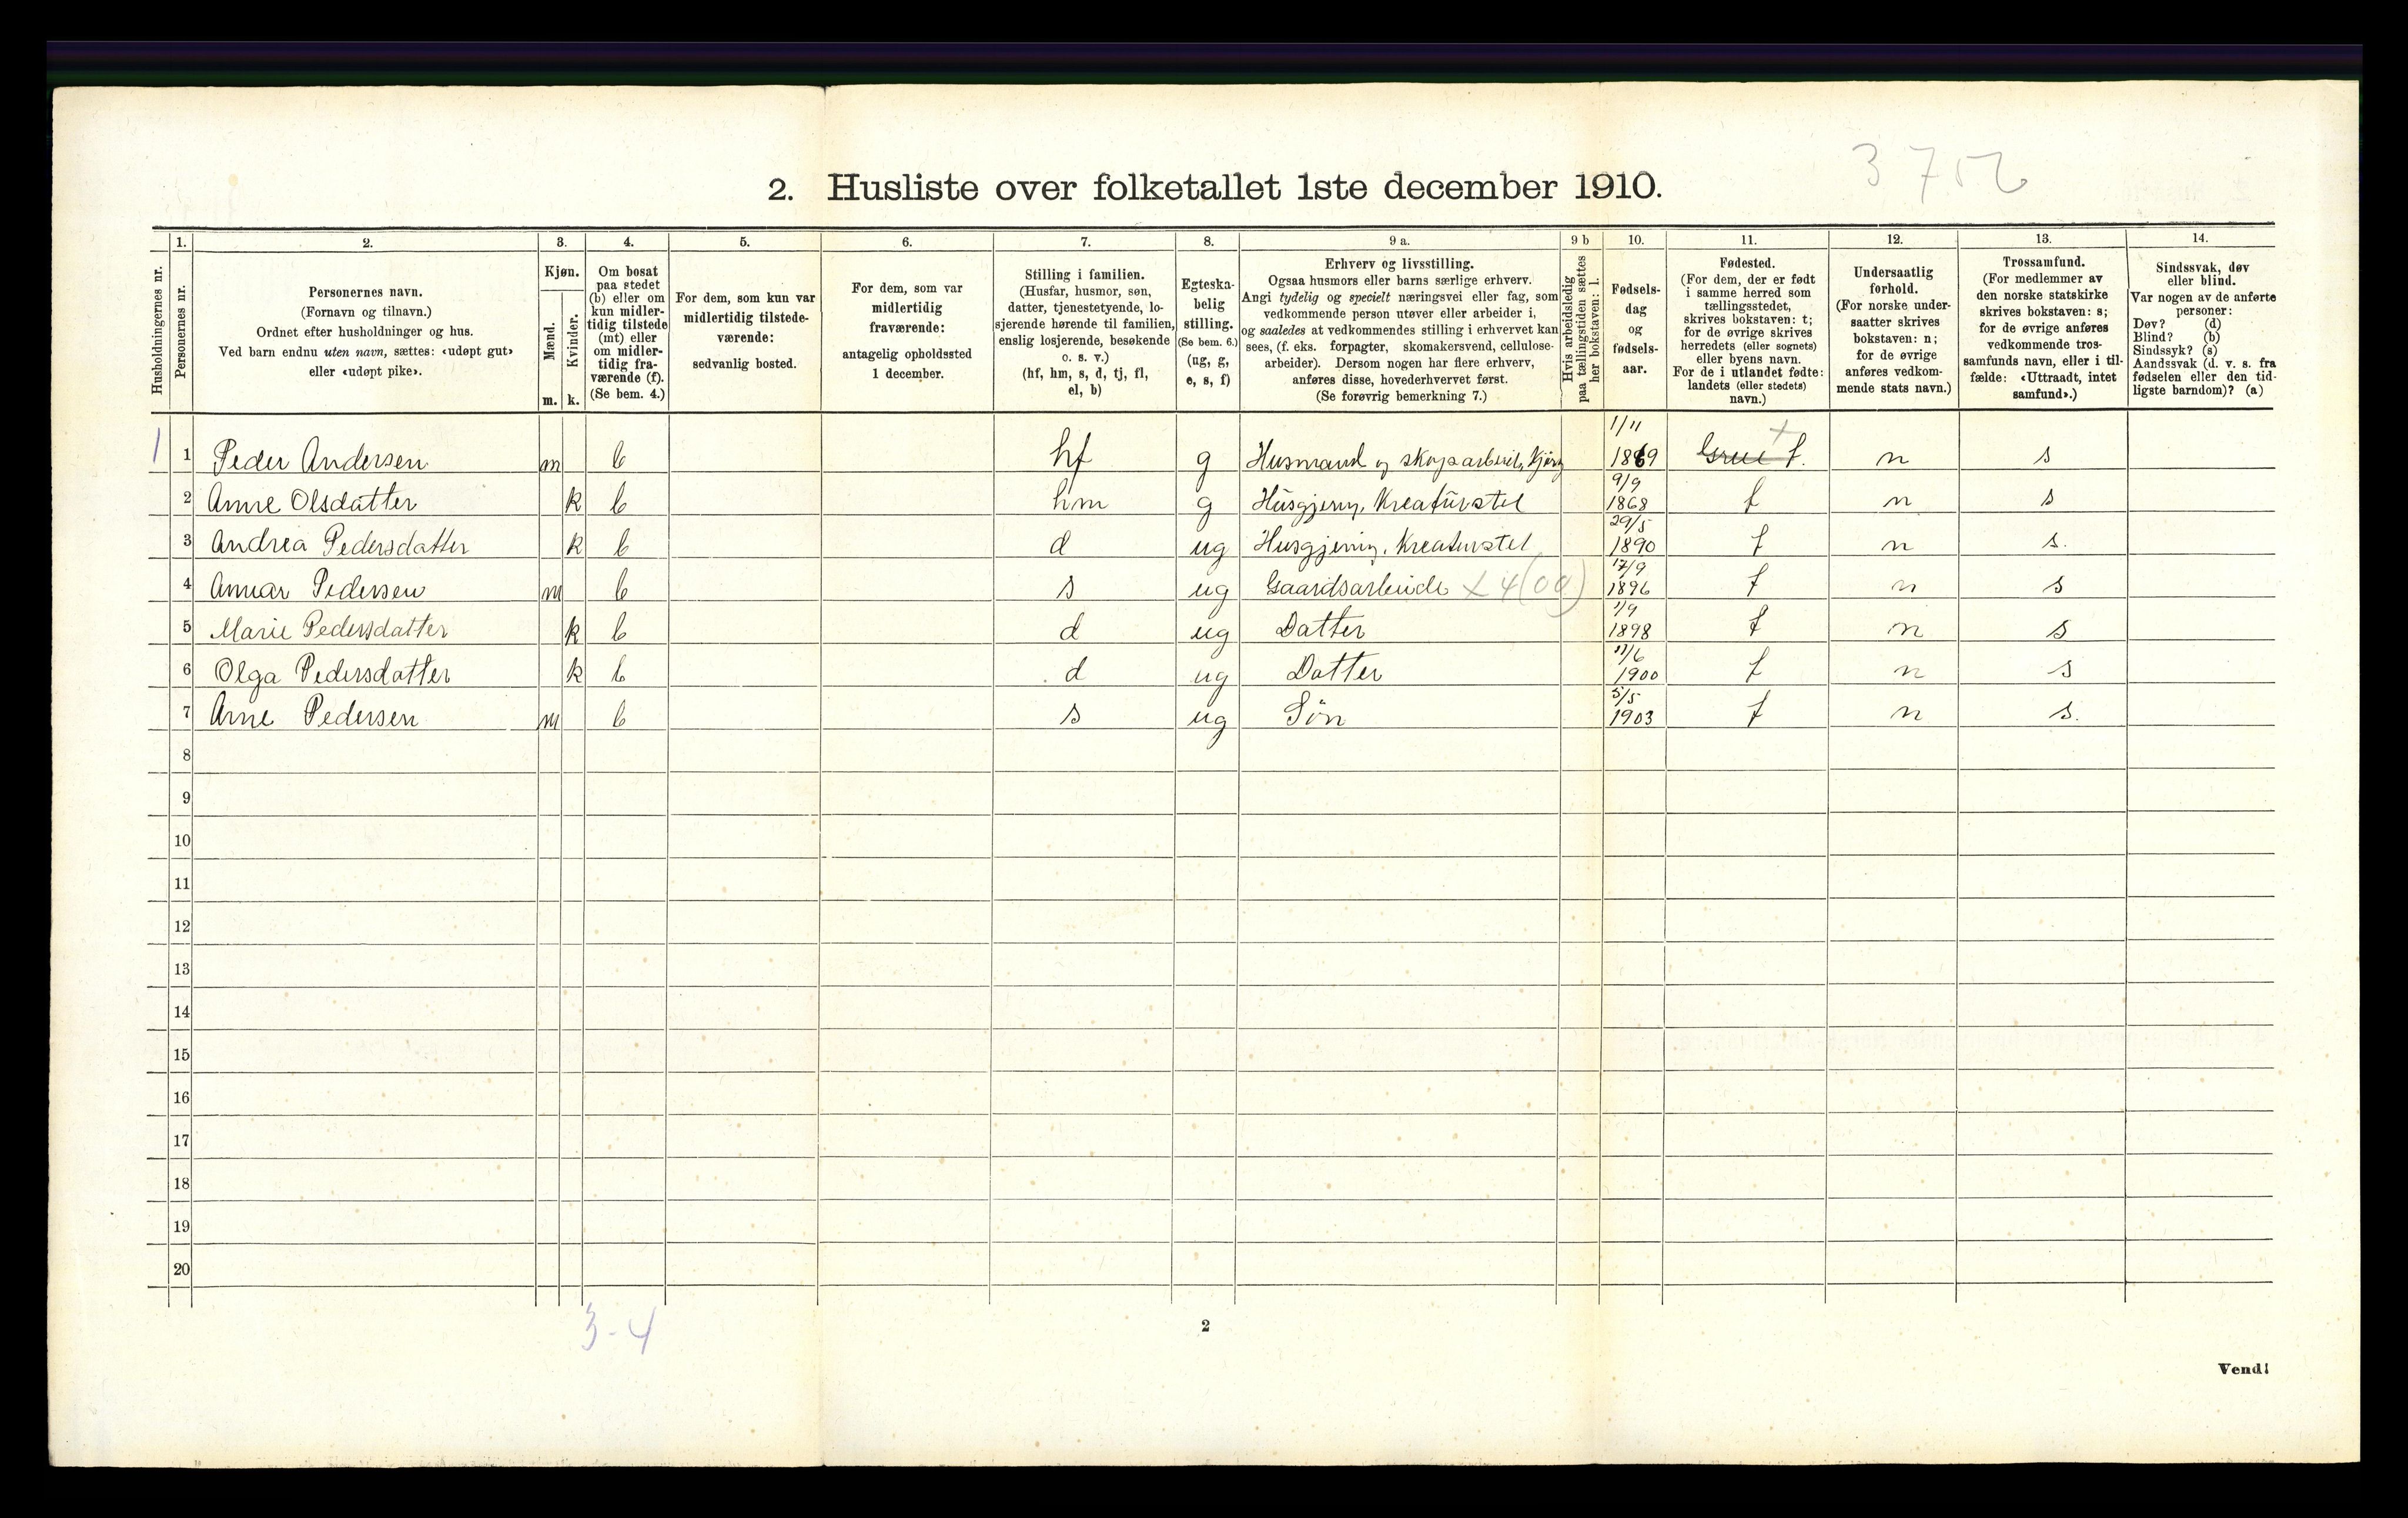 3752
2. Husliste over folketallet 1ste december 1910.
1. 2. 3. 4. 5. 6. 7. 8. 9 a. 9 b 10. 11. 12. 13. 14.
Husholdningernes nr.
Personernes nr.
Personernes navn.
(Fornavn og tilnavn.)
Ordnet efter husholdninger og hus.
Ved barn endnu uten navn, sættes: «udøpt gut»
eller «udøpt pike».
Kjøn.
Mænd.
Kvinder.
m. k.
Om bosat
paa stedet
(b) eller om
kun midler-
tidig tilstede
(mt) eller
om midler-
tidig fra-
værende (f).
(Se bem. 4.)
For dem, som kun var
midlertidig tilstede-
værende:
sedvanlig bosted.
For dem, som var
midlertidig
fraværende:
antagelig opholdssted
1 december.
Stilling i familien.
(Husfar, husmor, søn,
datter, tjenestetyende, lo-
sjerende hørende til familien,
enslig losjerende, besøkende
o. s. v.)
(hf, hm, s, d, tj, fl,
el, b)
Egteska-
belig
stilling.
(Se bem. 6.)
(ug, g,
e, s, f)
Erhverv og livsstilling.
Ogsaa husmors eller barns særlige erhverv.
Angi tydelig og specielt næringsvei eller fag, som
vedkommende person utøver eller arbeider i,
og saaledes at vedkommendes stilling i erhvervet kan
sees, (f. eks. forpagter, skomakersvend, cellulose-
arbeider). Dersom nogen har flere erhverv,
anføres disse, hovederhvervet først.
(Se forøvrig bemerkning 7.)
Hvis arbeidsledig
paa tællingstiden sættes
her bokstaven: l.
Fødsels-
dag
og
fødsels-
aar.
Fødested.
(For dem, der er født
i samme herred som
tællingsstedet,
skrives bokstaven: t;
for de øvrige skrives
herredets (eller sognets)
eller byens navn.
For de i utlandet fødte:
landets (eller stedets)
navn.)
Undersaatlig
forhold.
(For norske under-
saatter skrives
bokstaven: n;
for de øvrige
anføres vedkom-
mende stats navn.)
Trossamfund.
(For medlemmer av
den norske statskirke
skrives bokstaven: s;
for de øvrige anføres
vedkommende tros-
samfunds navn, eller i til-
fælde: «Uttraadt, intet
samfund».)
Sindssvak, døv
eller blind.
Var nogen av de anførte
personer:
Døv? (d)
Blind? (b)
Sindssyk? (s)
Aandssvak (d. v. s. fra
fødselen eller den tid-
ligste barndom)? (a)
1 1 Peder Andersen m b hf g Husmand og skogsarbeide, kjøring 1/11 1869 Grue t. n s
2 Anne Olsdatter k b hm g Husgjerning, Kreaturstel 9/9 1868 t n s
3 Andrea Pedersdatter k b d ug Husgjerning, Kreaturstel 29/5 1890 t n s.
4 Annar Pedersen m b s ug Gaardsarbeide x 4(00) 17/9 1896 t n s
5 Marie Pedersdatter k b d ug Datter 1/9 1898 t n s
6 Olga Pedersdatter k b d ug Datter 11/6 1900 t n s
7 Arne Pedersen m b s ug Søn 5/5 1903 t n s.
8
9
10
11
12
13
14
15
16
17
18
19
20
3-4
2
Vend!